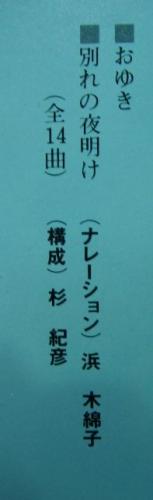 ■おゆき
■別れの夜明け (ナレーション) 浜 木綿子
(全14曲) (構成) 杉 紀彦